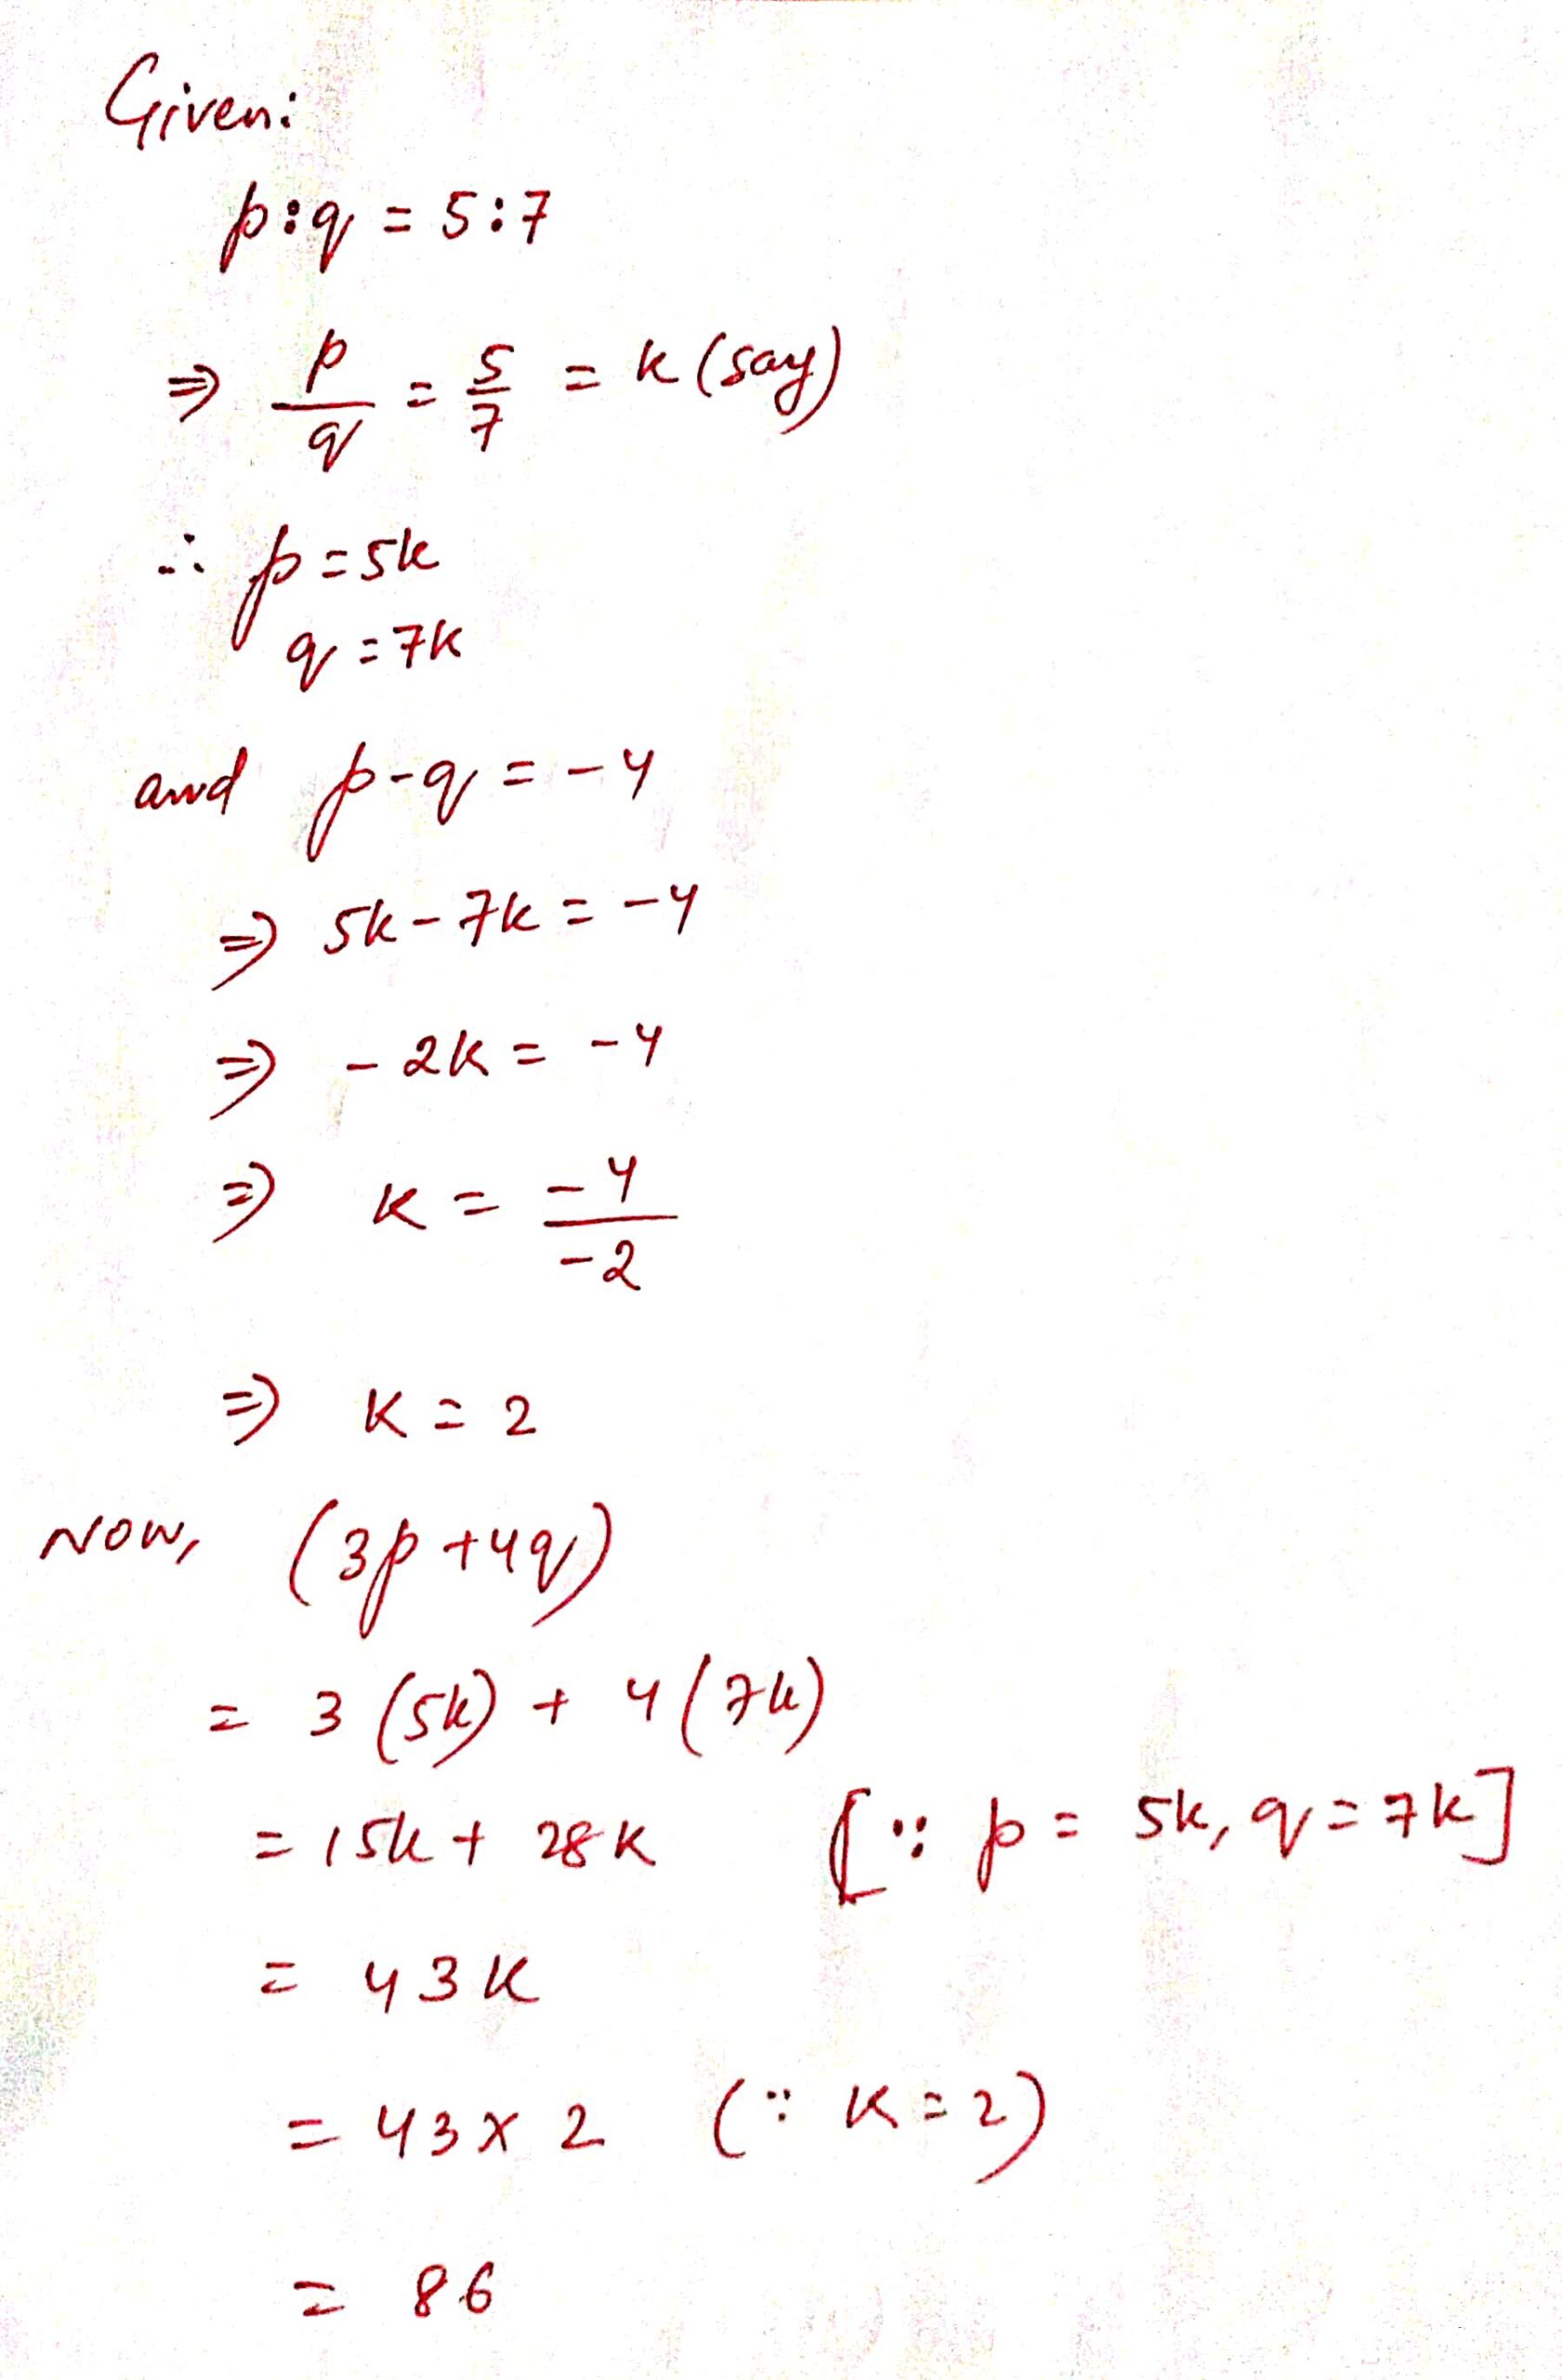 Given:
p:q = 5:7
⇒ p/q = 5/7 = k (say)
∴ p = 5k
q = 7k
and p-q = -4
⇒ 5k - 7k = -4
⇒ - 2k = -4
⇒ k = -4/-2
⇒ k = 2
Now, (3p +4q)
= 3 (5k) + 4 (7k)
= 15k + 28k [∵ p = 5k, q = 7k]
= 43k
= 43 x 2 (∵ k = 2)
= 86